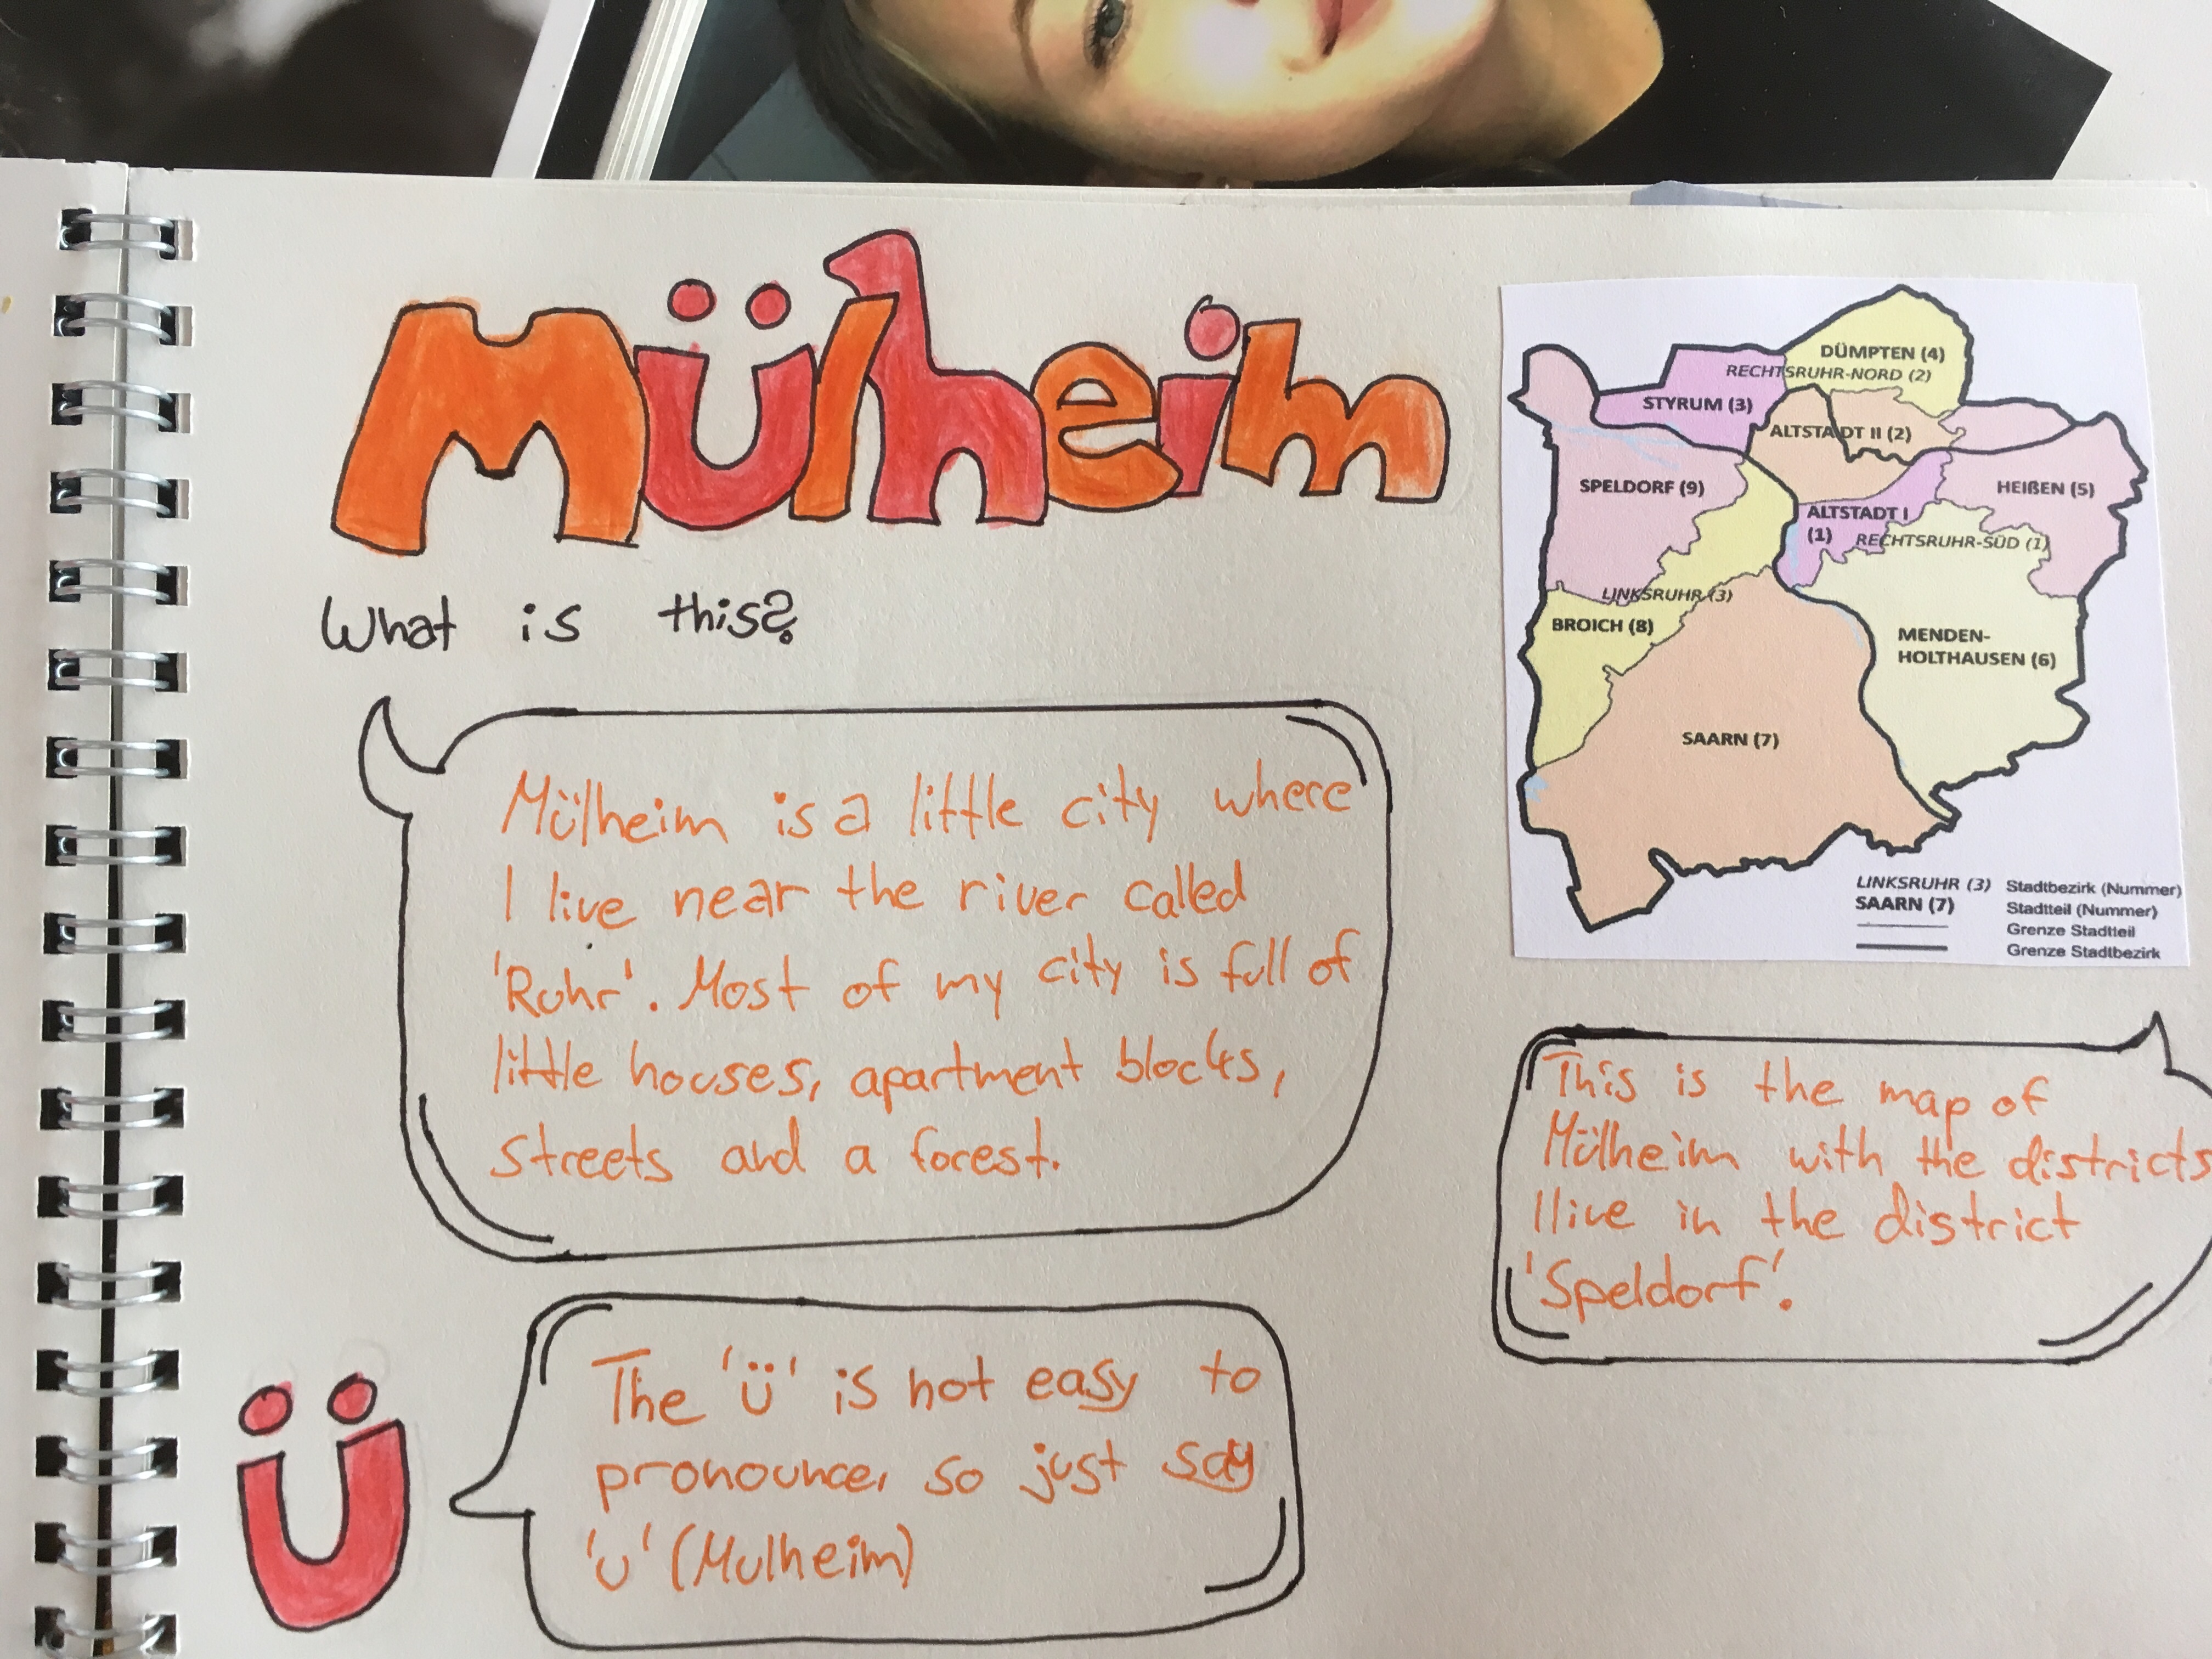 Mülheim
What is this?
Mülheim is a little city where
I live near the river called
'Ruhr'. Most of my city is full of
little houses, apartment blocks,
streets and a forest.
DÜMPTEN (4)
RECHTSRUHR-NORD (2)
STYRUM (3)
ALTSTADT II (2)
SPELDORF (9)
HEIßEN (5)
ALTSTADT I
(1)
RECHTSRUHR-SÜD (1)
LINKSRUHR (3)
BROICH (8)
MENDEN-
HOLTHAUSEN (6)
SAARN (7)
LINKSRUHR (3) Stadtbezirk (Nummer)
SAARN (7) Stadtteil (Nummer)
Grenze Stadtteil
Grenze Stadtbezirk
This is the map of
Mülheim with the districts
I live in the district
'Speldorf'.
Ü
The 'ü' is not easy to
pronounce, so just say
'u' (Mulheim)